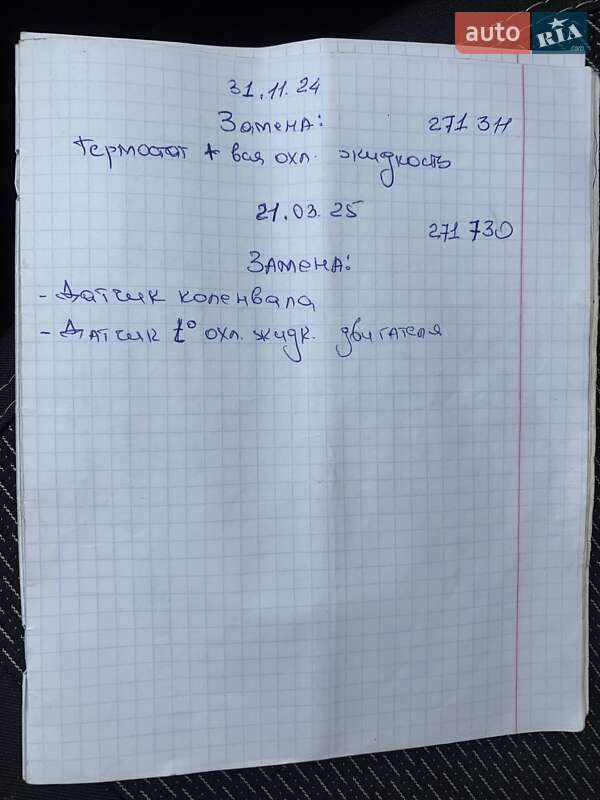 auto RIA.com
31.11.24
Замена: 271 311
термостат + вся охл. жидкость
21.03.25
271 730
Замена:
- Датчик коленвала
- Датчик t° охл. жидк. двигателя